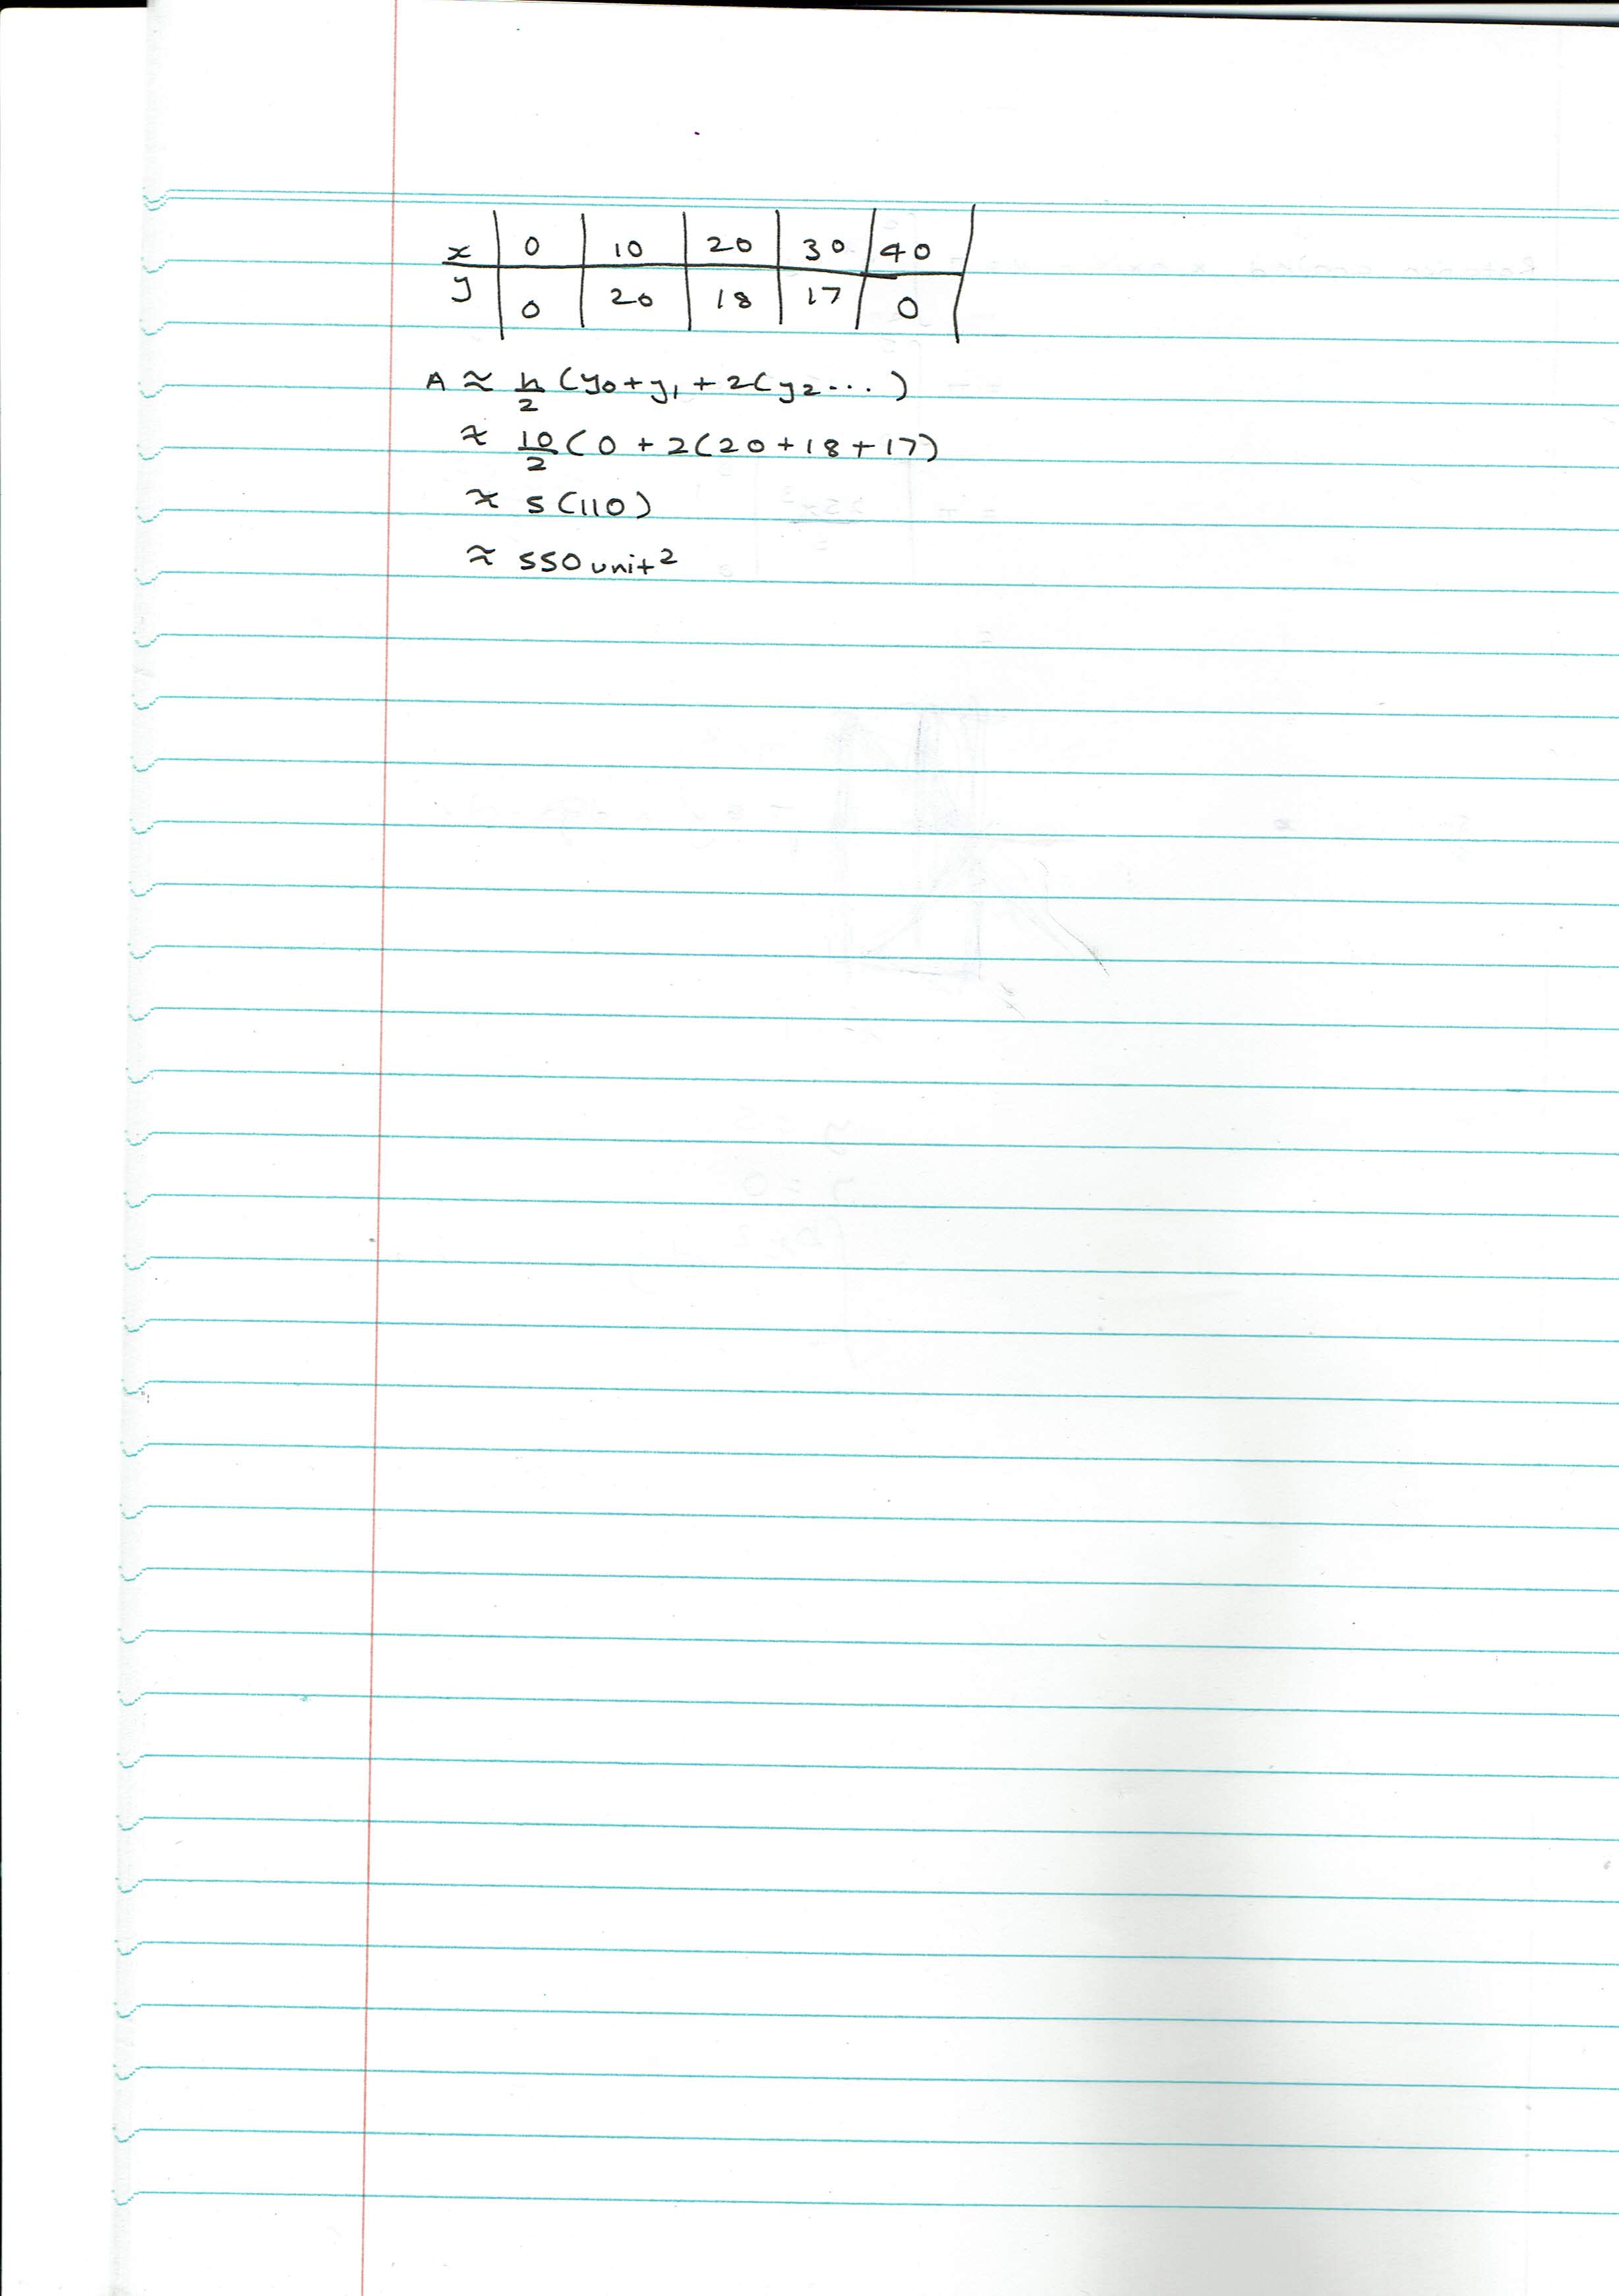 x | 0 | 10 | 20 | 30 | 40 |
y | 0 | 20 | 18 | 17 | 0 |
A ≈ h/2 (y₀ + y₁ + 2(y₂ ... )
≈ 10/2 ( 0 + 2(20 + 18 + 17)
≈ 5 (110)
≈ 550 unit²